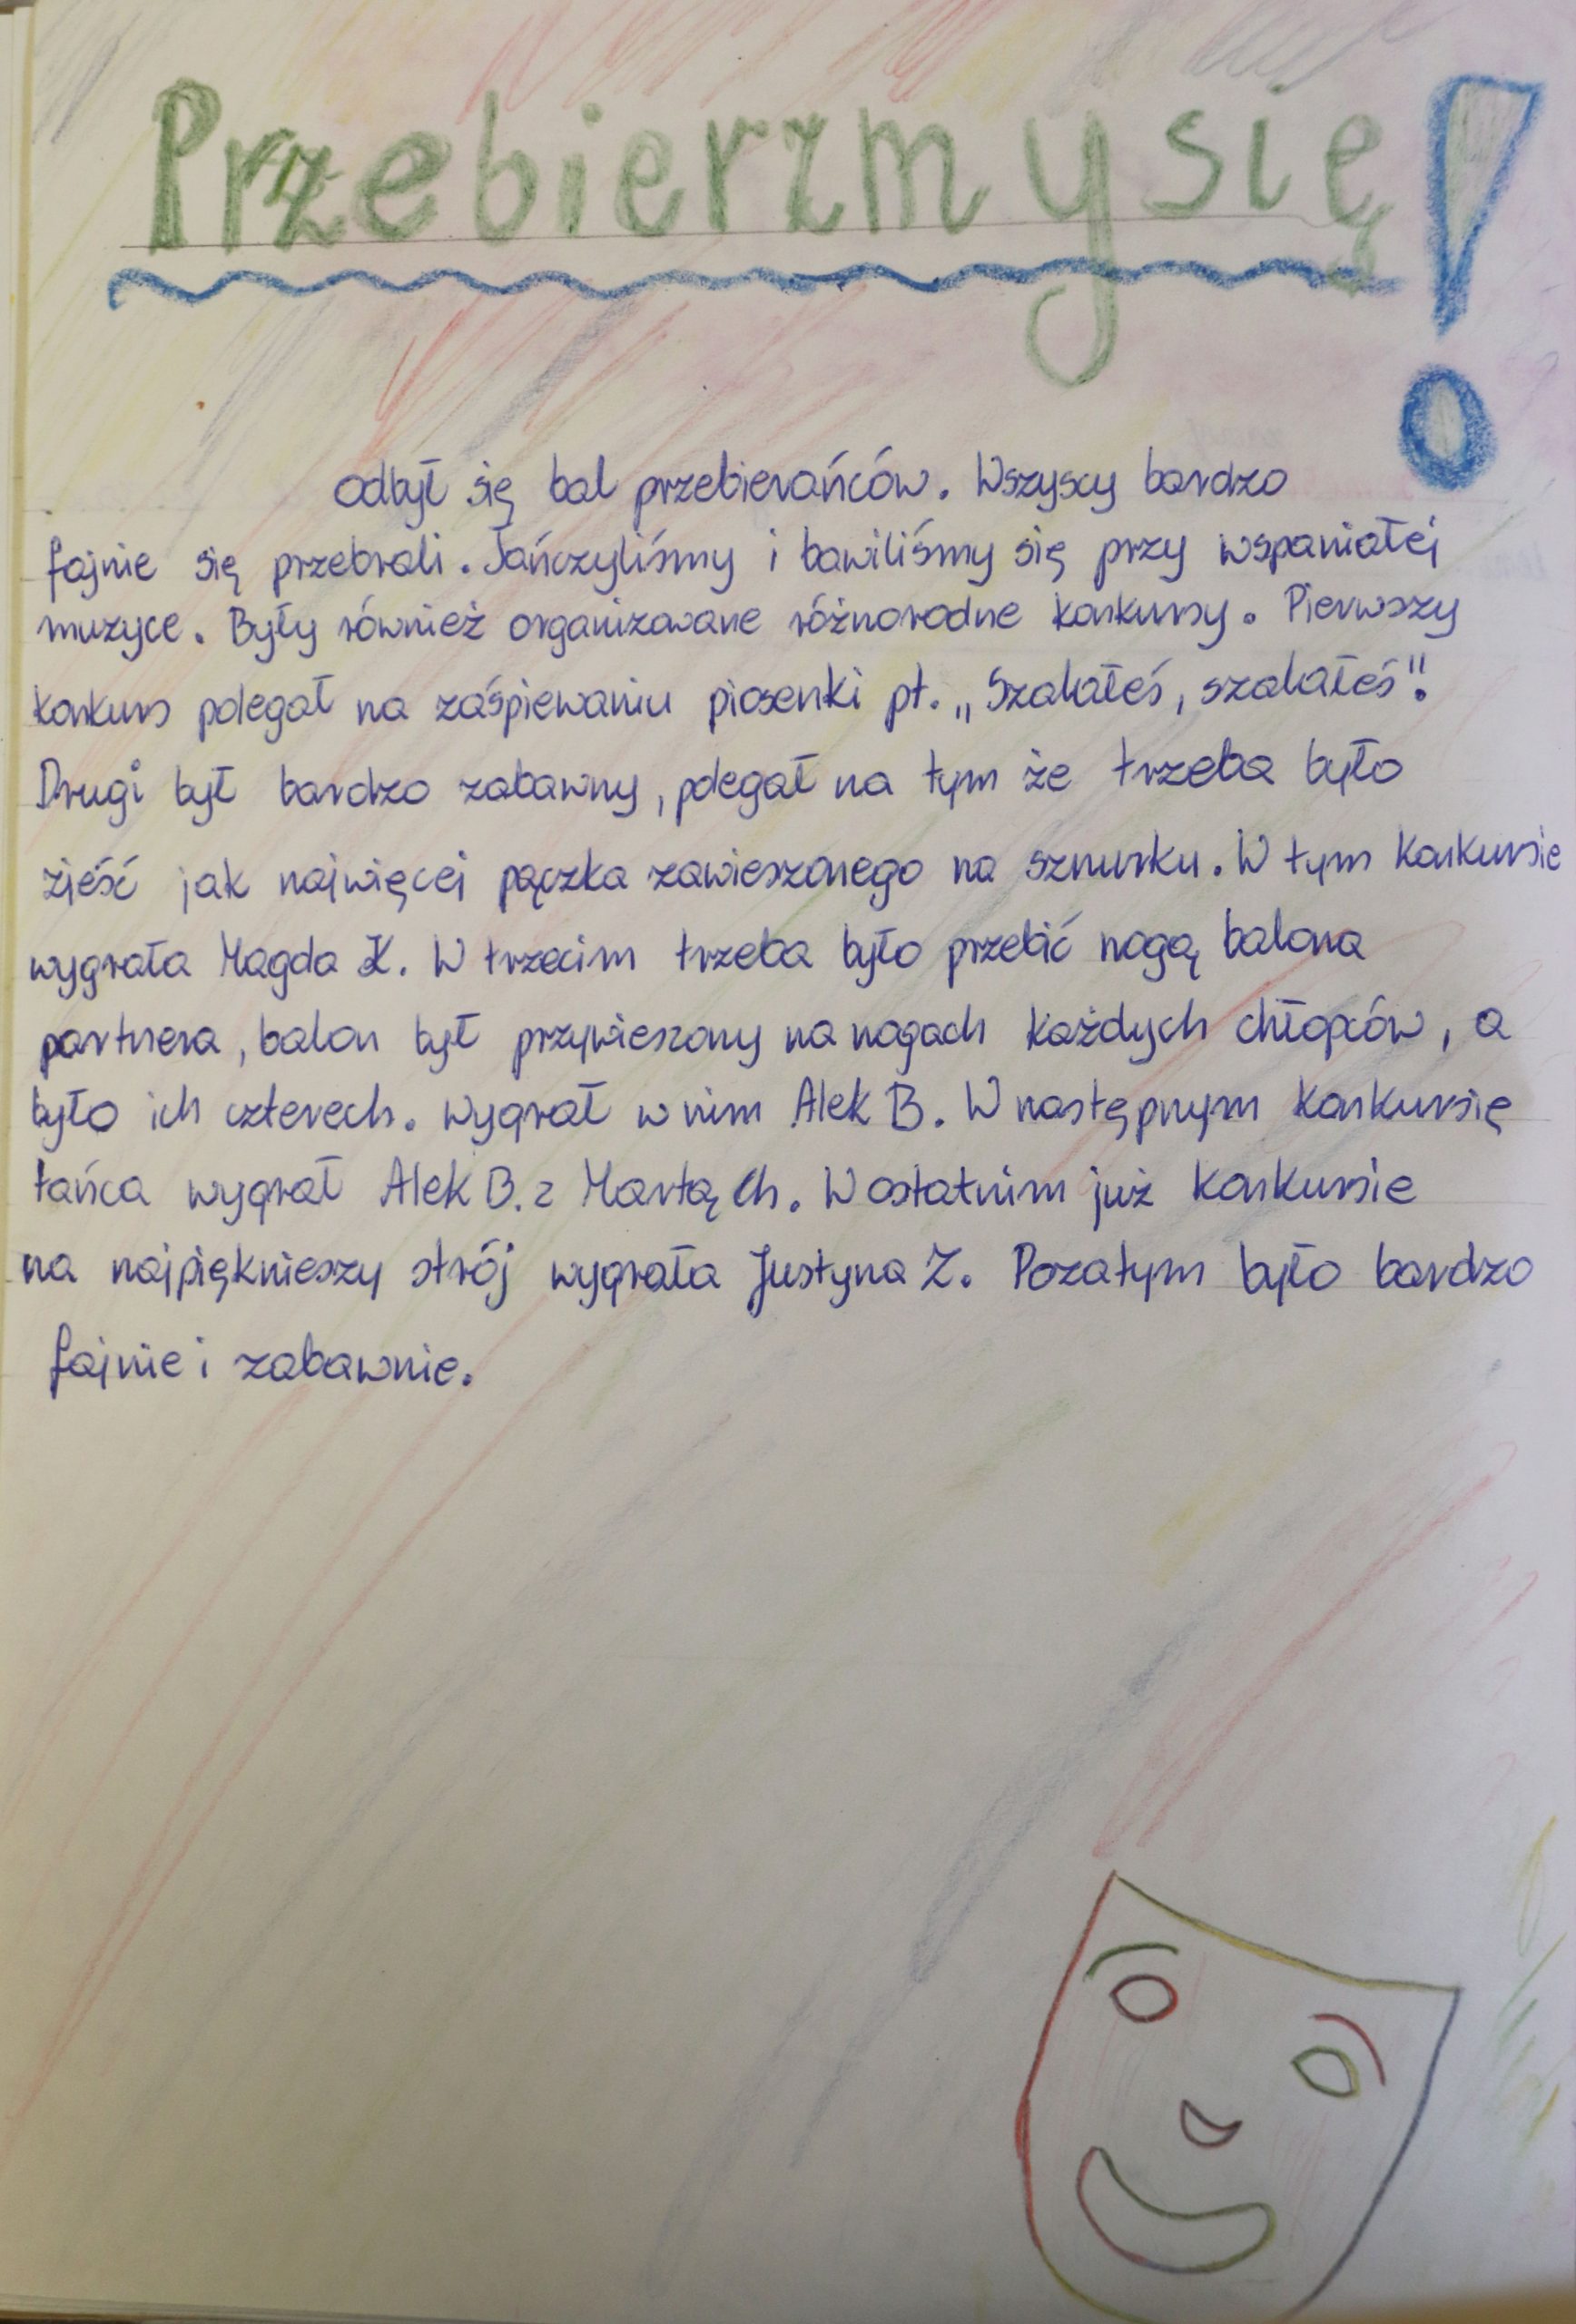 Przebierzmy się!
odbył się bal przebierańców. Wszyscy bardzo
fajnie się przebrali. Tańczyliśmy i bawiliśmy się przy wspaniałej
muzyce. Były również organizowane różnorodne konkursy. Pierwszy
konkurs polegał na zaśpiewaniu piosenki pt. „Szalałeś, szalałeś".
Drugi był bardzo zabawny, polegał na tym że trzeba było
zjeść jak najwięcej pączka zawieszonego na sznurku. W tym konkursie
wygrała Magda K. W trzecim trzeba było przebić nogą balona
partnera, balon był przywieszony na nogach każdych chłopców, a
było ich czterech. Wygrał w nim Alek B. W następnym konkursię
tańca wygrał Alek B. z Martą Ch. W ostatnim już konkursie
na najpięknieszy strój wygrała Justyna Z. Pozatym było bardzo
fajnie i zabawnie.